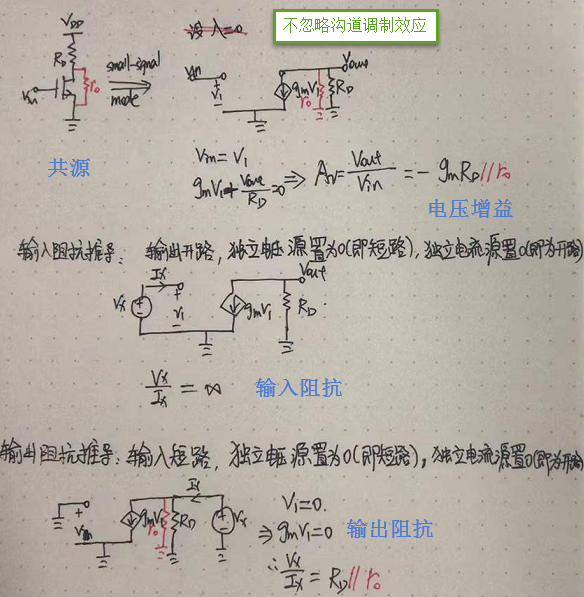 不忽略沟道调制效应
设 λ=0
VDD
RD
ro
Vin
small-signal
mode
共源
Vin
V1
gmV1
ro
RD
Vout
Vin = V1
gmV1+Vout/RD=0 ⇒ Av=Vout/Vin=-gmRD//ro
电压增益
输入阻抗推导: 输出开路, 独立电压源置为0(即短路), 独立电流源置0(即为开路)
Ix
Vx
V1
gmV1
RD
Vout
Vx/Ix = ∞
输入阻抗
输出阻抗推导: 输入短路, 独立电压源置为0(即短路), 独立电流源置0(即为开路)
Vin
gmV1
ro
RD
Ix
Vx
V1=0.
⇒ gmV1=0
输出阻抗
∴ Vx/Ix = RD//ro